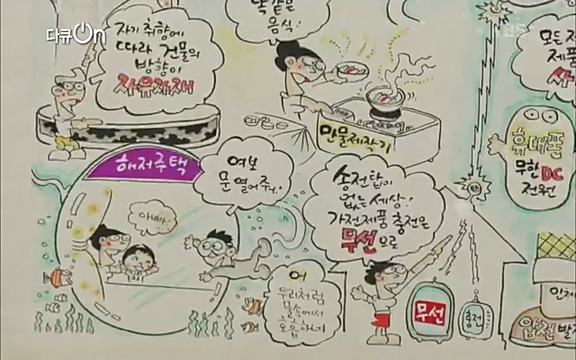 다큐On
KBS
똑같은
음식!
자기 취향에
따라 건물의
방향이
자유자재
모든 전
제품
만물제작기
휴대폰
무한DC
전원
해저주택
여보
문 열어줘!
아빠다!
송전탑이
없는 세상!
가전제품 충전은
무선으로
어
우리처럼
물속에서
호흡하네
무선
충전
인체
압전발